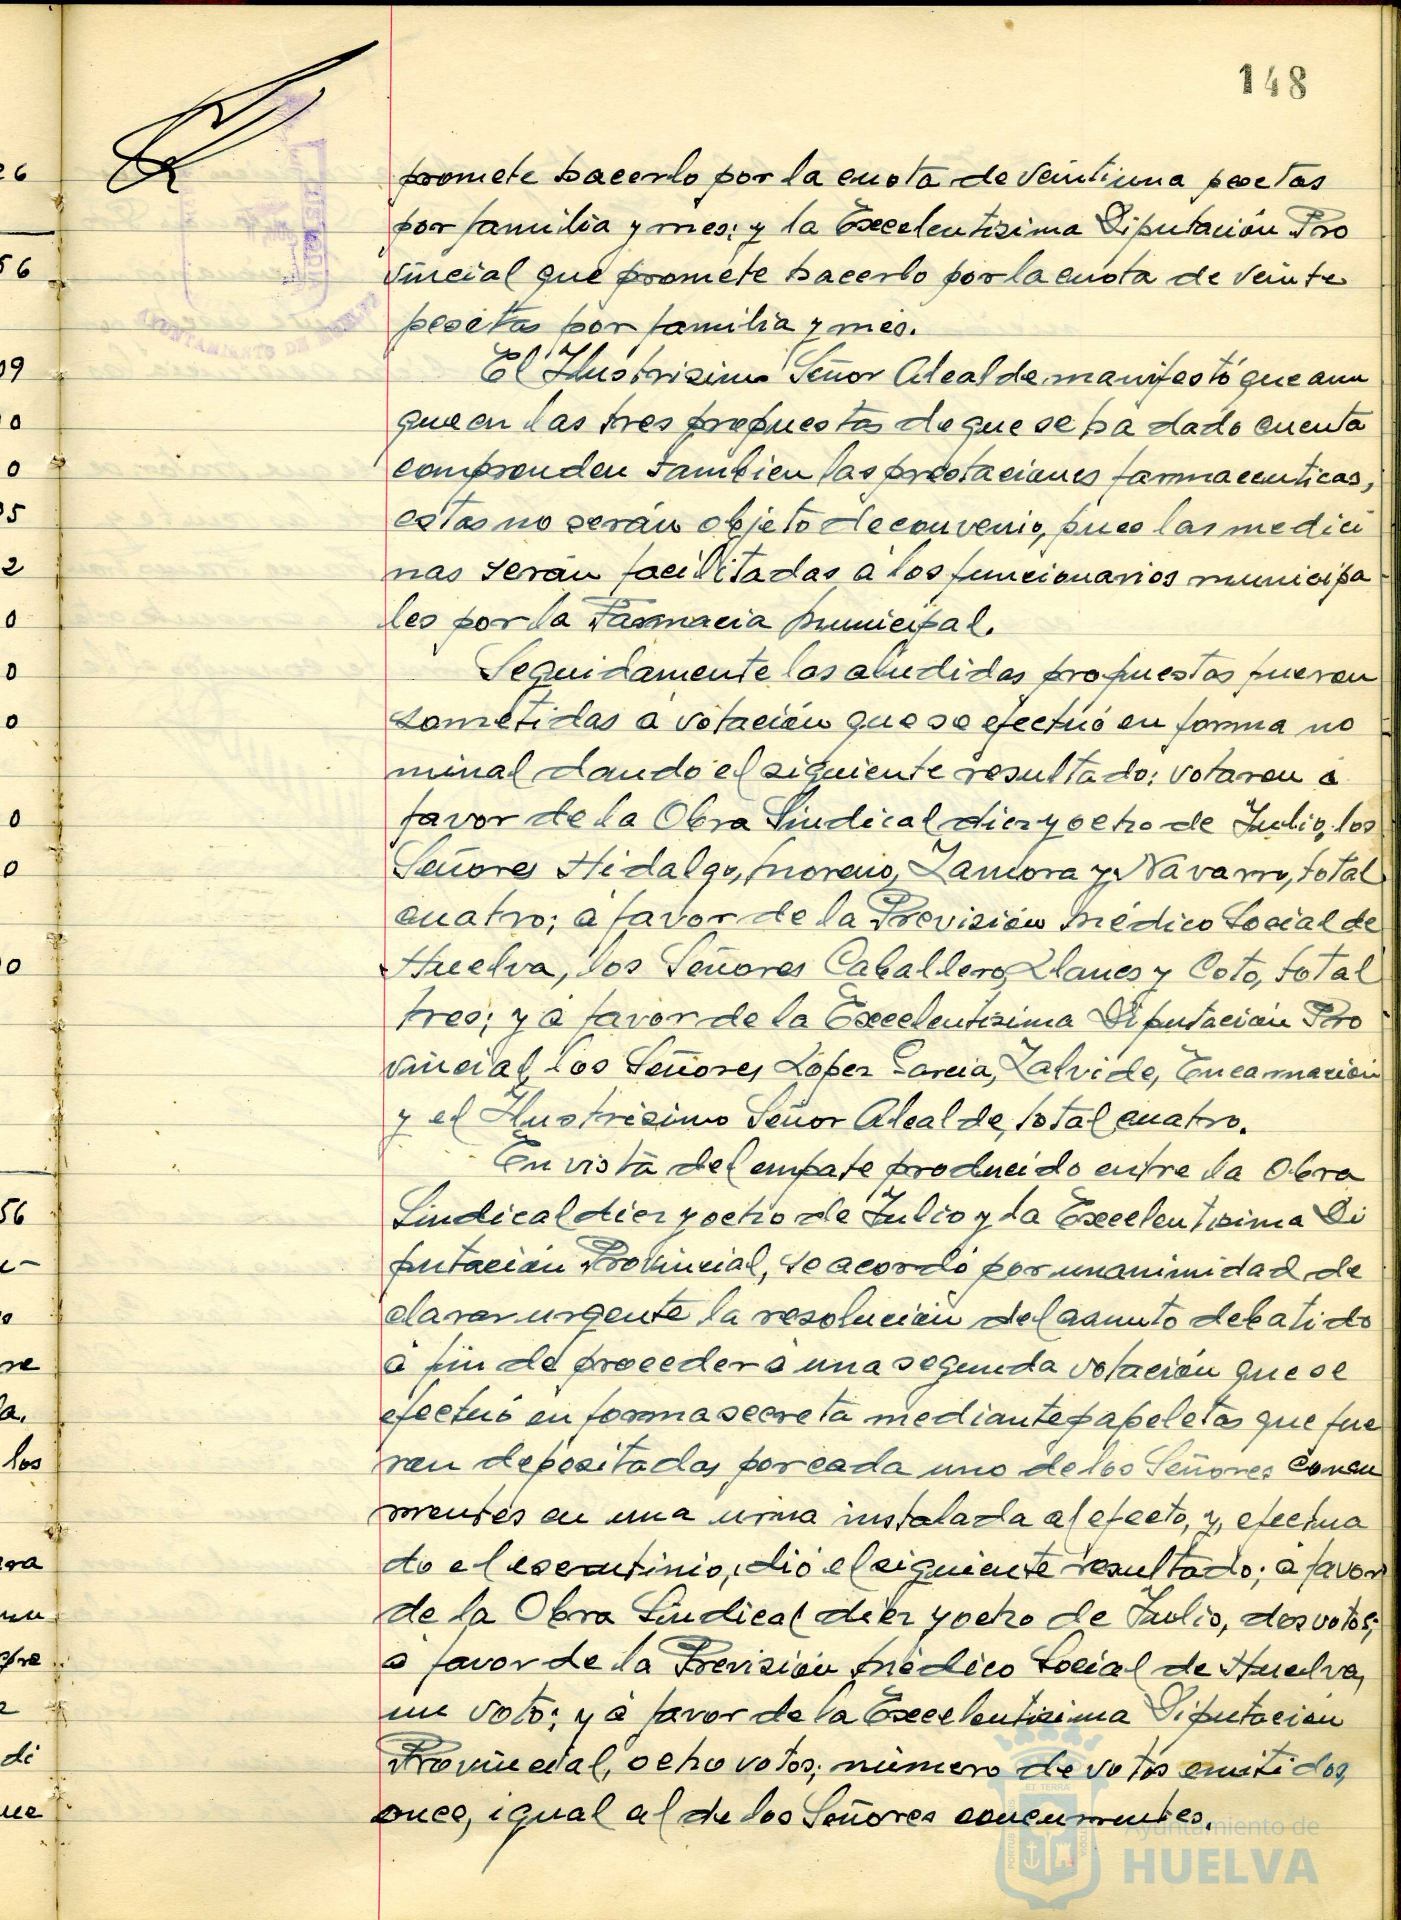 148
promete hacerlo por la cuota de veintiuna pesetas
por familia y mes; y la Excelentísima Diputación Pro
vincial que promete hacerlo por la cuota de veinte
pesetas por familia y mes.
El Ilustrísimo Señor Alcalde manifestó que aun
que en las tres propuestas de que se ha dado cuenta
comprenden tambien las prestaciones farmaceuticas,
estas no serán objeto de convenio, pues las medici
nas serán facilitadas á los funcionarios municipa
les por la Farmacia Municipal.
Seguidamente las aludidas propuestas fueron
sometidas á votación que se efectuó en forma no
minal dando el siguiente resultado: votaron á
favor de la Obra Sindical diez y ocho de Julio, los
Señores Hidalgo, Moreno, Zamora y Navarro, total
cuatro; á favor de la Previsión Médico Social de
Huelva, los Señores Caballero, Llanes y Coto, total
tres; y á favor de la Excelentísima Diputación Pro
vincial, los Señores López García, Zalvide, Encarnación
y el Ilustrísimo Señor Alcalde, total cuatro.
En vista del empate producido entre la Obra
Sindical diez y ocho de Julio y la Excelentísima Di
putación Provincial, se acordó por unanimidad de
clarar urgente la resolución del asunto debatido
á fin de proceder á una segunda votación que se
efectuó en forma secreta mediante papeletas que fue
ron depositadas por cada uno de los Señores concu
rrentes en una urna instalada al efecto, y, efectua
do el escrutinio, dió el siguiente resultado; á favor
de la Obra Sindical diez y ocho de Julio, dos votos;
á favor de la Previsión Médico Social de Huelva,
un voto; y á favor de la Excelentísima Diputación
Provincial, ocho votos; número de votos emitidos,
once, igual al de los Señores concurrentes.
AYUNTAMIENTO DE HUELVA
Ayuntamiento de
HUELVA